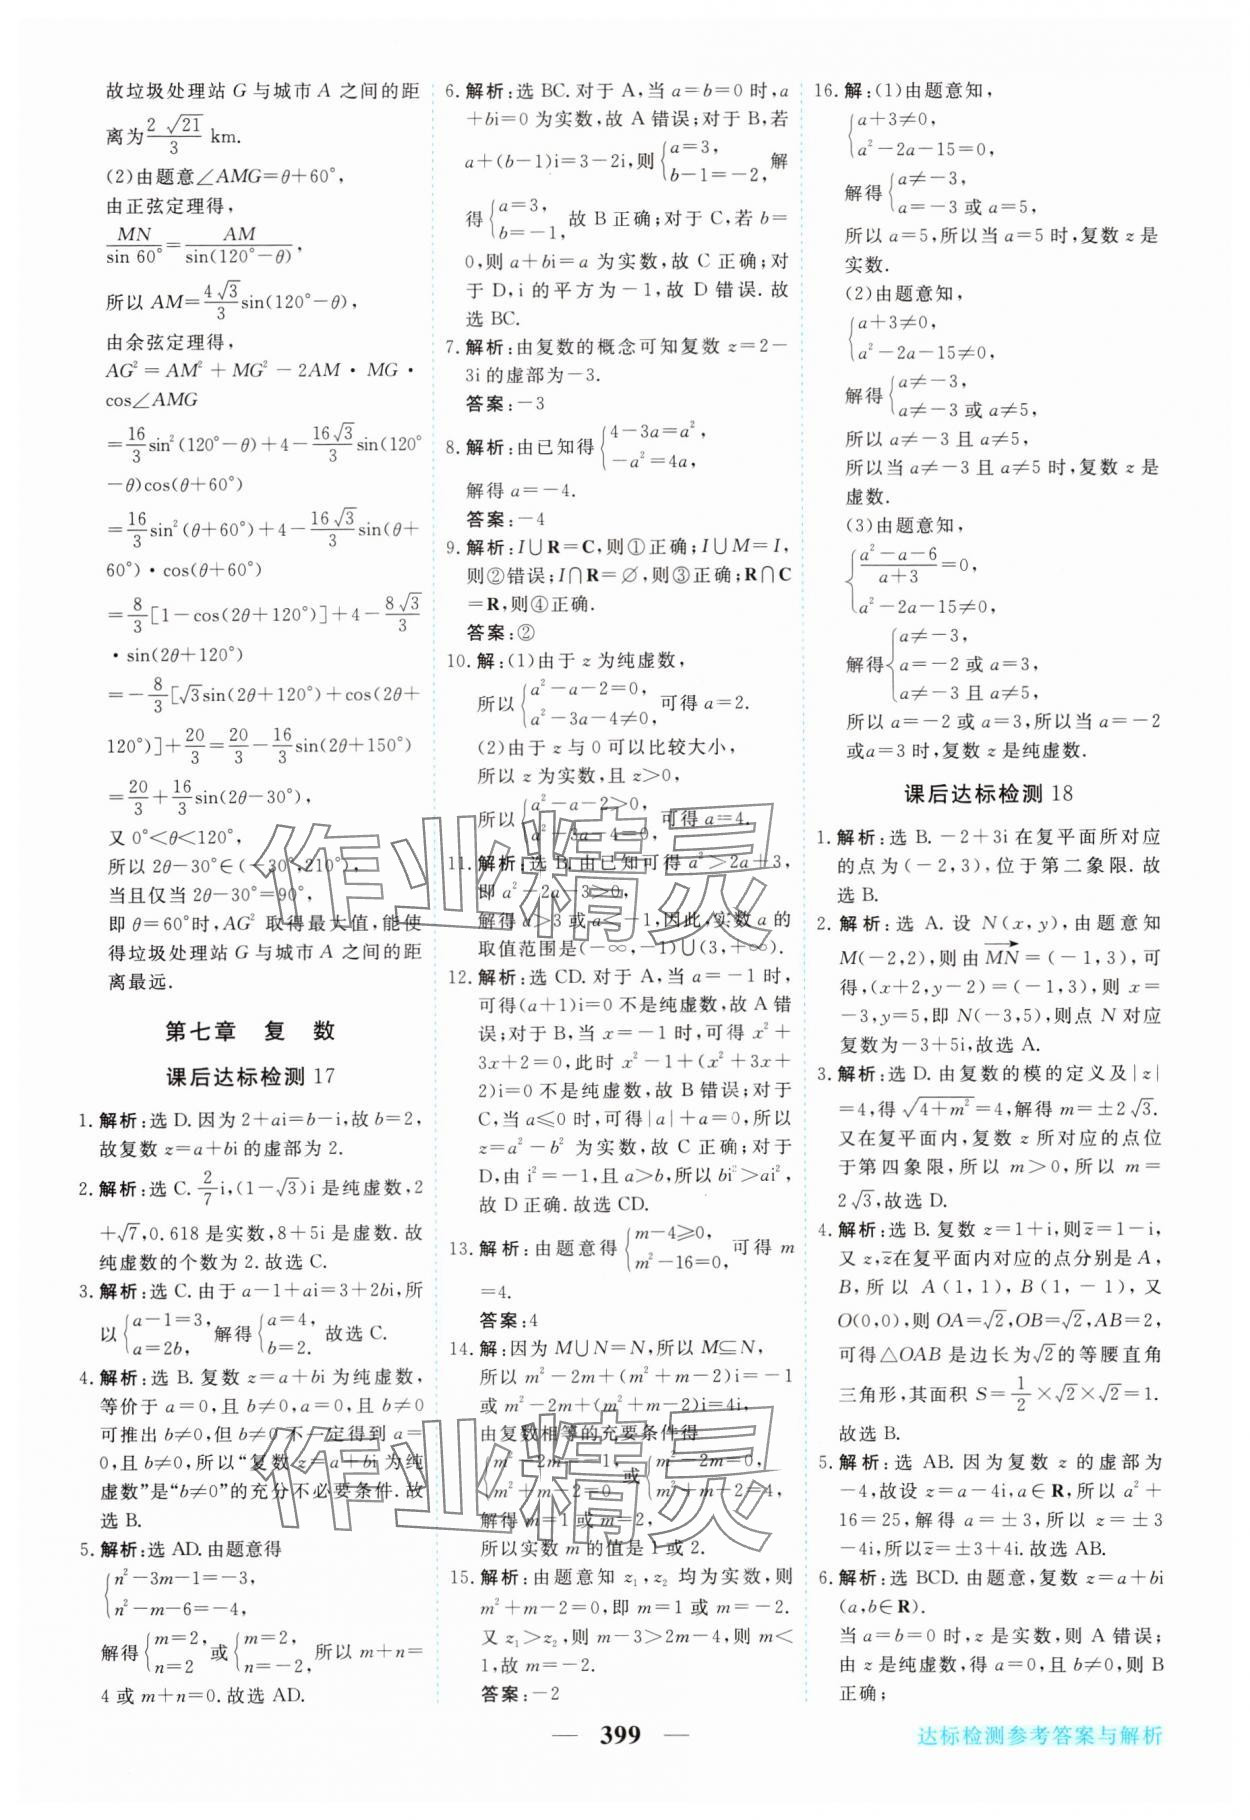 故垃圾处理站 G 与城市 A 之间的距
离为 2√21/3 km.
(2)由题意∠AMG=θ+60°,
由正弦定理得,
MN/sin 60°=AM/sin(120°-θ),
所以 AM=4√3/3 sin(120°-θ),
由余弦定理得,
AG²=AM²+MG²-2AM·MG·
cos∠AMG
=16/3 sin²(120°-θ)+4-16√3/3 sin(120°
-θ)cos(θ+60°)
=16/3 sin²(θ+60°)+4-16√3/3 sin(θ+
60°)·cos(θ+60°)
=8/3[1-cos(2θ+120°)]+4-8√3/3
·sin(2θ+120°)
=-8/3[√3sin(2θ+120°)+cos(2θ+
120°)]+20/3=20/3-16/3 sin(2θ+150°)
=20/3+16/3 sin(2θ-30°),
又 0°<θ<120°,
所以 2θ-30°∈(-30°,210°),
当且仅当 2θ-30°=90°,
即 θ=60°时,AG² 取得最大值,能使
得垃圾处理站 G 与城市 A 之间的距
离最远.
第七章 复 数
课后达标检测 17
1. 解析:选 D.因为 2+ai=b-i,故 b=2,
故复数 z=a+bi 的虚部为 2.
2. 解析:选 C. 2/7 i,(1-√3)i 是纯虚数,2
+√7,0.618 是实数,8+5i 是虚数.故
纯虚数的个数为 2.故选 C.
3. 解析:选 C.由于 a-1+ai=3+2bi,所
以{a-1=3, a=2b, 解得{a=4, b=2. 故选 C.
4. 解析:选 B.复数 z=a+bi 为纯虚数,
等价于 a=0,且 b≠0,a=0,且 b≠0
可推出 b≠0,但 b≠0 不一定得到 a=
0,且 b≠0,所以“复数 z=a+bi 为纯
虚数”是“b≠0”的充分不必要条件.故
选 B.
5. 解析:选 AD.由题意得
{n²-3m-1=-3,
n²-m-6=-4,
解得{m=2, n=2 或{m=2, n=-2, 所以 m+n=
4 或 m+n=0.故选 AD.
6. 解析:选 BC.对于 A,当 a=b=0 时,a
+bi=0 为实数,故 A 错误;对于 B,若
a+(b-1)i=3-2i,则{a=3, b-1=-2, 解
得{a=3, b=-1, 故 B 正确;对于 C,若 b=
0,则 a+bi=a 为实数,故 C 正确;对
于 D,i 的平方为-1,故 D 错误.故
选 BC.
7. 解析:由复数的概念可知复数 z=2-
3i 的虚部为-3.
答案:-3
8. 解析:由已知得{4-3a=a², -a²=4a,
解得 a=-4.
答案:-4
9. 解析:I∪R=C,则①正确;I∪M=I,
则②错误;I∩R=∅,则③正确;R∩C
=R,则④正确.
答案:②
10. 解:(1)由于 z 为纯虚数,
所以{a²-a-2=0, a²-3a-4≠0, 可得 a=2.
(2)由于 z 与 0 可以比较大小,
所以 z 为实数,且 z>0,
所以{a²-a-2>0, a²-3a-4=0, 可得 a=4.
11. 解析:选 B.由已知可得 a²>2a+3,
即 a²-2a-3>0,
解得 a>3 或 a<-1,因此,实数 a 的
取值范围是(-∞,-1)∪(3,+∞).
12. 解析:选 CD.对于 A,当 a=-1 时,
可得(a+1)i=0 不是纯虚数,故 A 错
误;对于 B,当 x=-1 时,可得 x²+
3x+2=0,此时 x²-1+(x²+3x+
2)i=0 不是纯虚数,故 B 错误;对于
C,当 a≤0 时,可得|a|+a=0,所以
z=a²-b² 为实数,故 C 正确;对于
D,由 i²=-1,且 a>b,所以 bi²>ai²,
故 D 正确.故选 CD.
13. 解析:由题意得{m-4≥0, m²-16=0, 可得 m
=4.
答案:4
14. 解:因为 M∪N=N,所以 M⊆N,
所以 m²-2m+(m²+m-2)i=-1
或 m²-2m+(m²+m-2)i=4i,
由复数相等的充要条件得
{m²-2m=-1, m²+m-2=0 或{m²-2m=0, m²+m-2=4,
解得 m=1 或 m=-2,
所以实数 m 的值是 1 或 2.
15. 解析:由题意知 z₁,z₂ 均为实数,则
m²+m-2=0,即 m=1 或 m=-2.
又 z₁>z₂,则 m-3>2m-4,则 m<
1,故 m=-2.
答案:-2
16. 解:(1)由题意知,
{a+3≠0,
a²-2a-15=0,
解得{a≠-3, a=-3 或 a=5,
所以 a=5,所以当 a=5 时,复数 z 是
实数.
(2)由题意知,
{a+3≠0,
a²-2a-15≠0,
解得{a≠-3, a≠-3 或 a≠5,
所以 a≠-3 且 a≠5,
所以当 a≠-3 且 a≠5 时,复数 z 是
虚数.
(3)由题意知,
{(a²-a-6)/(a+3)=0,
a²-2a-15≠0,
解得{a≠-3, a=-2 或 a=3, a≠-3 且 a≠5,
所以 a=-2 或 a=3,所以当 a=-2
或a=3 时,复数 z 是纯虚数.
课后达标检测 18
1. 解析:选 B.-2+3i 在复平面所对应
的点为(-2,3),位于第二象限.故
选 B.
2. 解析:选 A.设 N(x,y),由题意知
M(-2,2),则由MN→=(-1,3),可
得,(x+2,y-2)=(-1,3),则 x=
-3,y=5,即 N(-3,5),则点 N 对应
复数为-3+5i,故选 A.
3. 解析:选 D.由复数的模的定义及|z|
=4,得√(4+m²)=4,解得 m=±2√3.
又在复平面内,复数 z 所对应的点位
于第四象限,所以 m>0,所以 m=
2√3,故选 D.
4. 解析:选 B.复数 z=1+i,则z̄=1-i,
又 z,z̄在复平面内对应的点分别是 A,
B,所以 A(1,1),B(1,-1),又
O(0,0),则 OA=√2,OB=√2,AB=2,
可得△OAB 是边长为√2的等腰直角
三角形,其面积 S=1/2×√2×√2=1.
故选 B.
5. 解析:选 AB.因为复数 z 的虚部为
-4,故设 z=a-4i,a∈R,所以 a²+
16=25,解得 a=±3,所以 z=±3
-4i,所以z̄=±3+4i.故选 AB.
6. 解析:选 BCD.由题意,复数 z=a+bi
(a,b∈R).
当 a=b=0 时,z 是实数,则 A 错误;
由 z 是纯虚数,得 a=0,且 b≠0,则 B
正确;
作业精灵
作业精灵
— 399 —
达标检测参考答案与解析